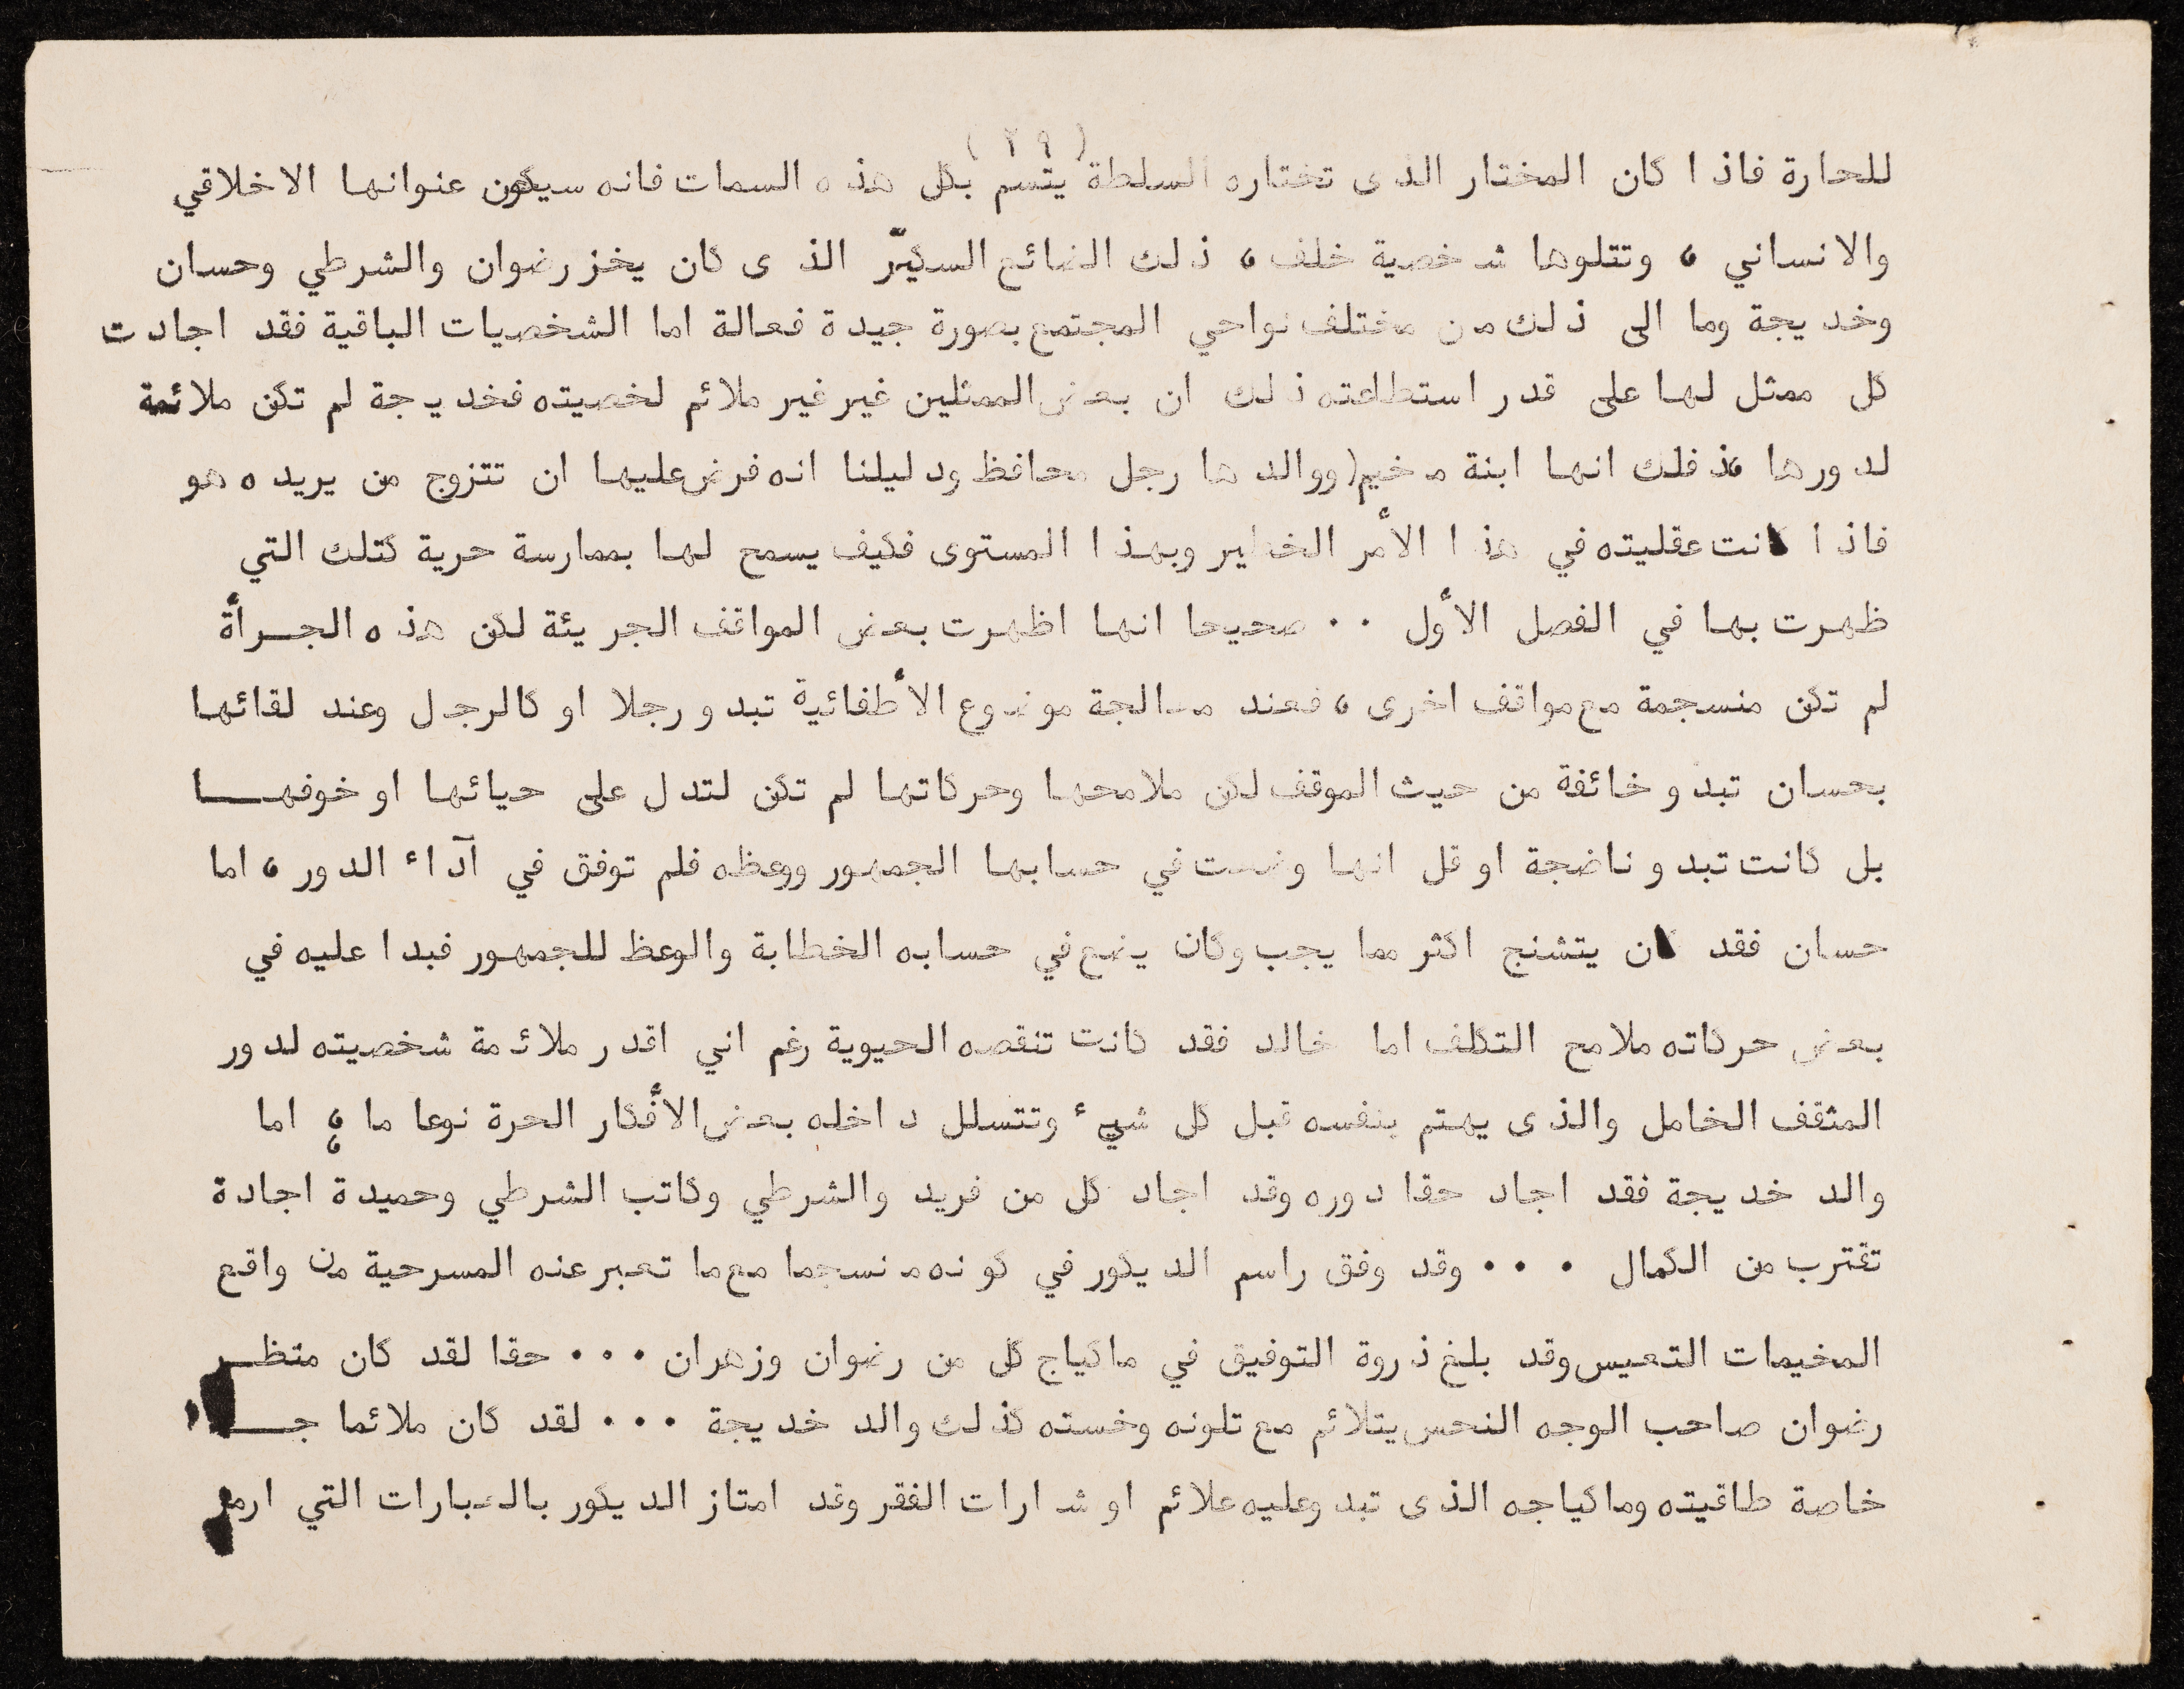 (٢٩)
للحارة فاذا كان المختار الذى تختاره السلطة يتسم بكل هذه السمات فانه سيكون عنوانها الاخلاقي
والانساني ، وتتلوها شخصية خلف ، ذلك الضائع السكيّر الذى كان يخز رضوان والشرطي وحسان
وخديجة وما الى ذلك من مختلف نواحي المجتمع بصورة جيدة فعالة اما الشخصيات الباقية فقد اجادت
كل ممثل لها على قدر استطاعته ذلك ان بعض الممثلين غير غير ملائم لخصيته فخديجة لم تكن ملائمة
لدورها فذلك انها ابنة مخيم( ووالدها رجل محافظ ودليلنا انه فرض عليها ان تتزوج من يريده هو
فاذا كانت عقليته في هذا الأمر الخطير وبهذا المستوى فكيف يسمح لها بممارسة حرية كتلك التي
ظهرت بها في الفصل الأول ٠٠ صحيحا انها اظهرت بعض المواقف الجريئة لكن هذه الجـــرأة
لم تكن منسجمة مع مواقف اخرى ، فعند معالجة موضوع الأطفائية تبدو رجلا او كالرجل وعند لقائها
بحسان تبدو خائفة من حيث الموقف لكن ملامحها وحركاتها لم تكن لتدل على حيائها او خوفهـــا
بل كانت تبدو ناضجة او قل انها وضعت في حسابها الجمهور ووعظه فلم توفق في آداء الدور ، اما
حسان فقد كان يتشنج اكثر مما يجب وكان يضع في حسابه الخطابة والوعظ للجمهور فبدا عليه في
بعض حركاته ملامح التكلف اما خالد فقد كانت تنقصه الحيوية رغم اني اقدر ملائمة شخصيته لدور
المثقف الخامل والذى يهتم بنفسه قبل كل شيء وتتسلل داخله بعض الأفكار الحرة نوعا ما ، اما
والد خديجة فقد اجاد حقا دوره وقد اجاد كل من فريد والشرطي وكاتب الشرطي وحميدة اجادة
تقترب من الكمال ٠٠٠ وقد وفق راسم الديكور في كونه منسجما مع ما تعبر عنه المسرحية من واقع
المخيمات التعيس وقد بلغ ذروة التوفيق في ماكياج كل من رضوان وزهران ٠٠٠ حقا لقد كان متظـــر
رضوان صاحب الوجه النحس يتلائم مع تلونه وخسته كذلك والد خديجة ٠٠٠ لقد كان ملائما
خاصة طاقيته وماكياجه الذى تبدو عليه علائم او شارات الفقر وقد امتاز الديكور بالعبارات التي